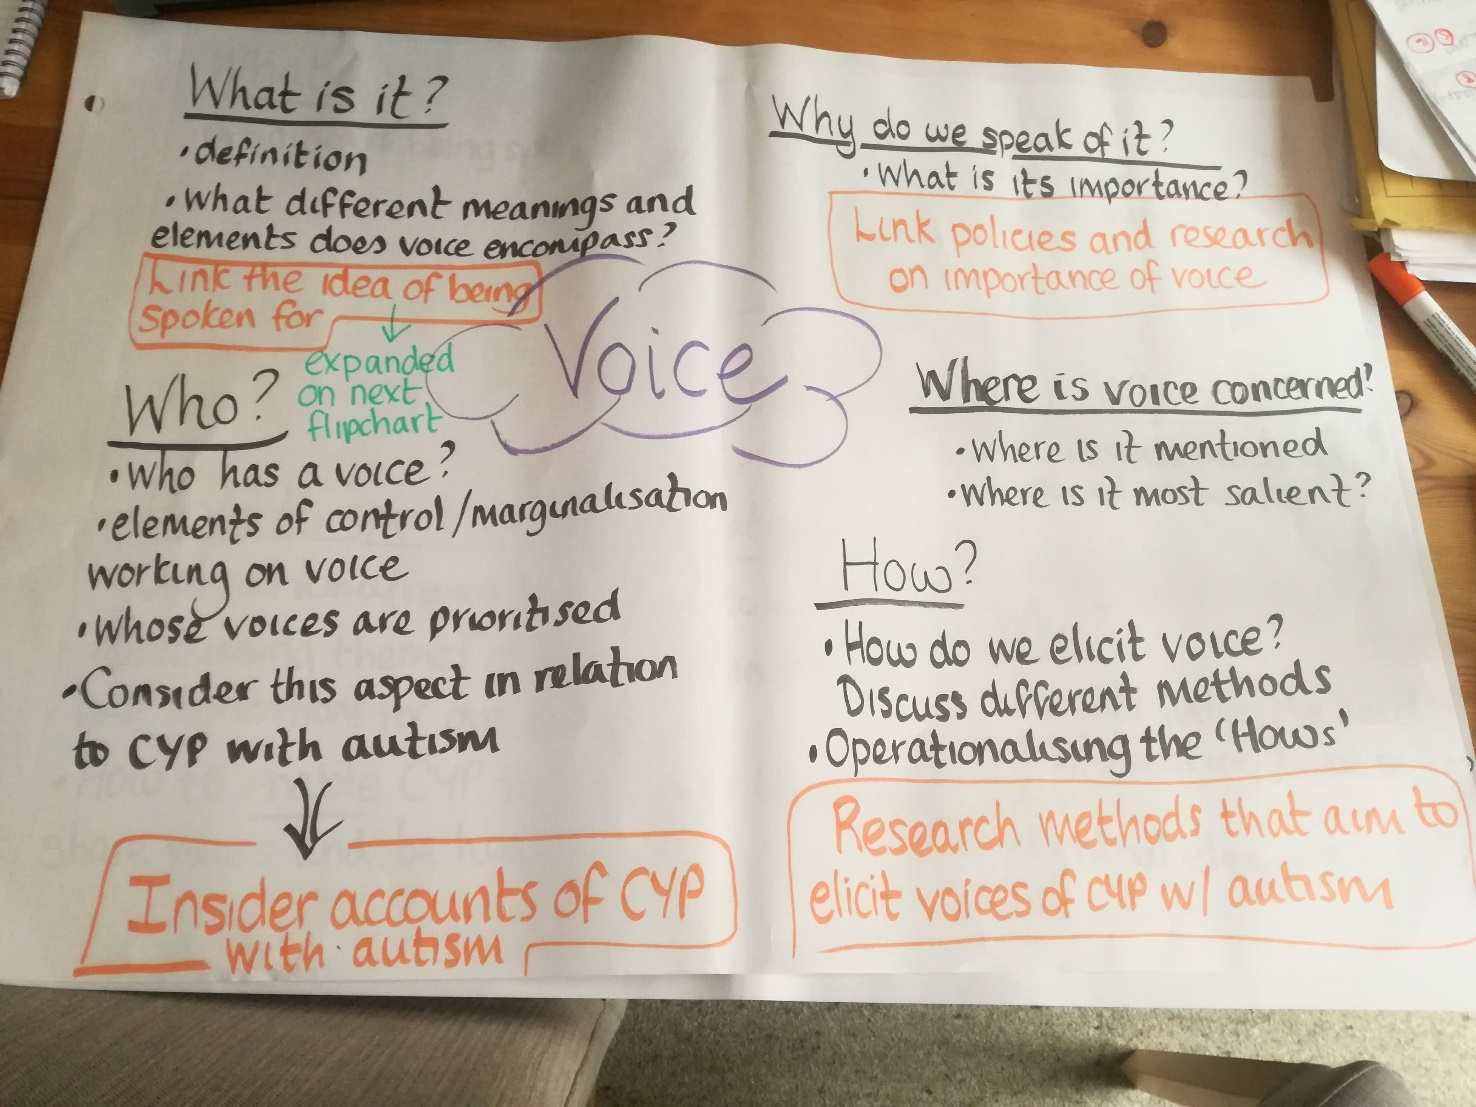 What is it?
• definition
• What different meanings and
elements does voice encompass?
Link the idea of being
spoken for
expanded
on next
flipchart
Voice
Who?
• Who has a voice?
• elements of control/marginalisation
working on voice
• Whose voices are prioritised
• Consider this aspect in relation
to CYP with autism
Insider accounts of CYP
with autism
Why do we speak of it?
• What is its importance?
Link policies and research
on importance of voice
Where is voice concerned?
• Where is it mentioned
• Where is it most salient?
How?
• How do we elicit voice?
Discuss different methods
• Operationalising the 'Hows'
Research methods that aim to
elicit voices of CYP w/ autism